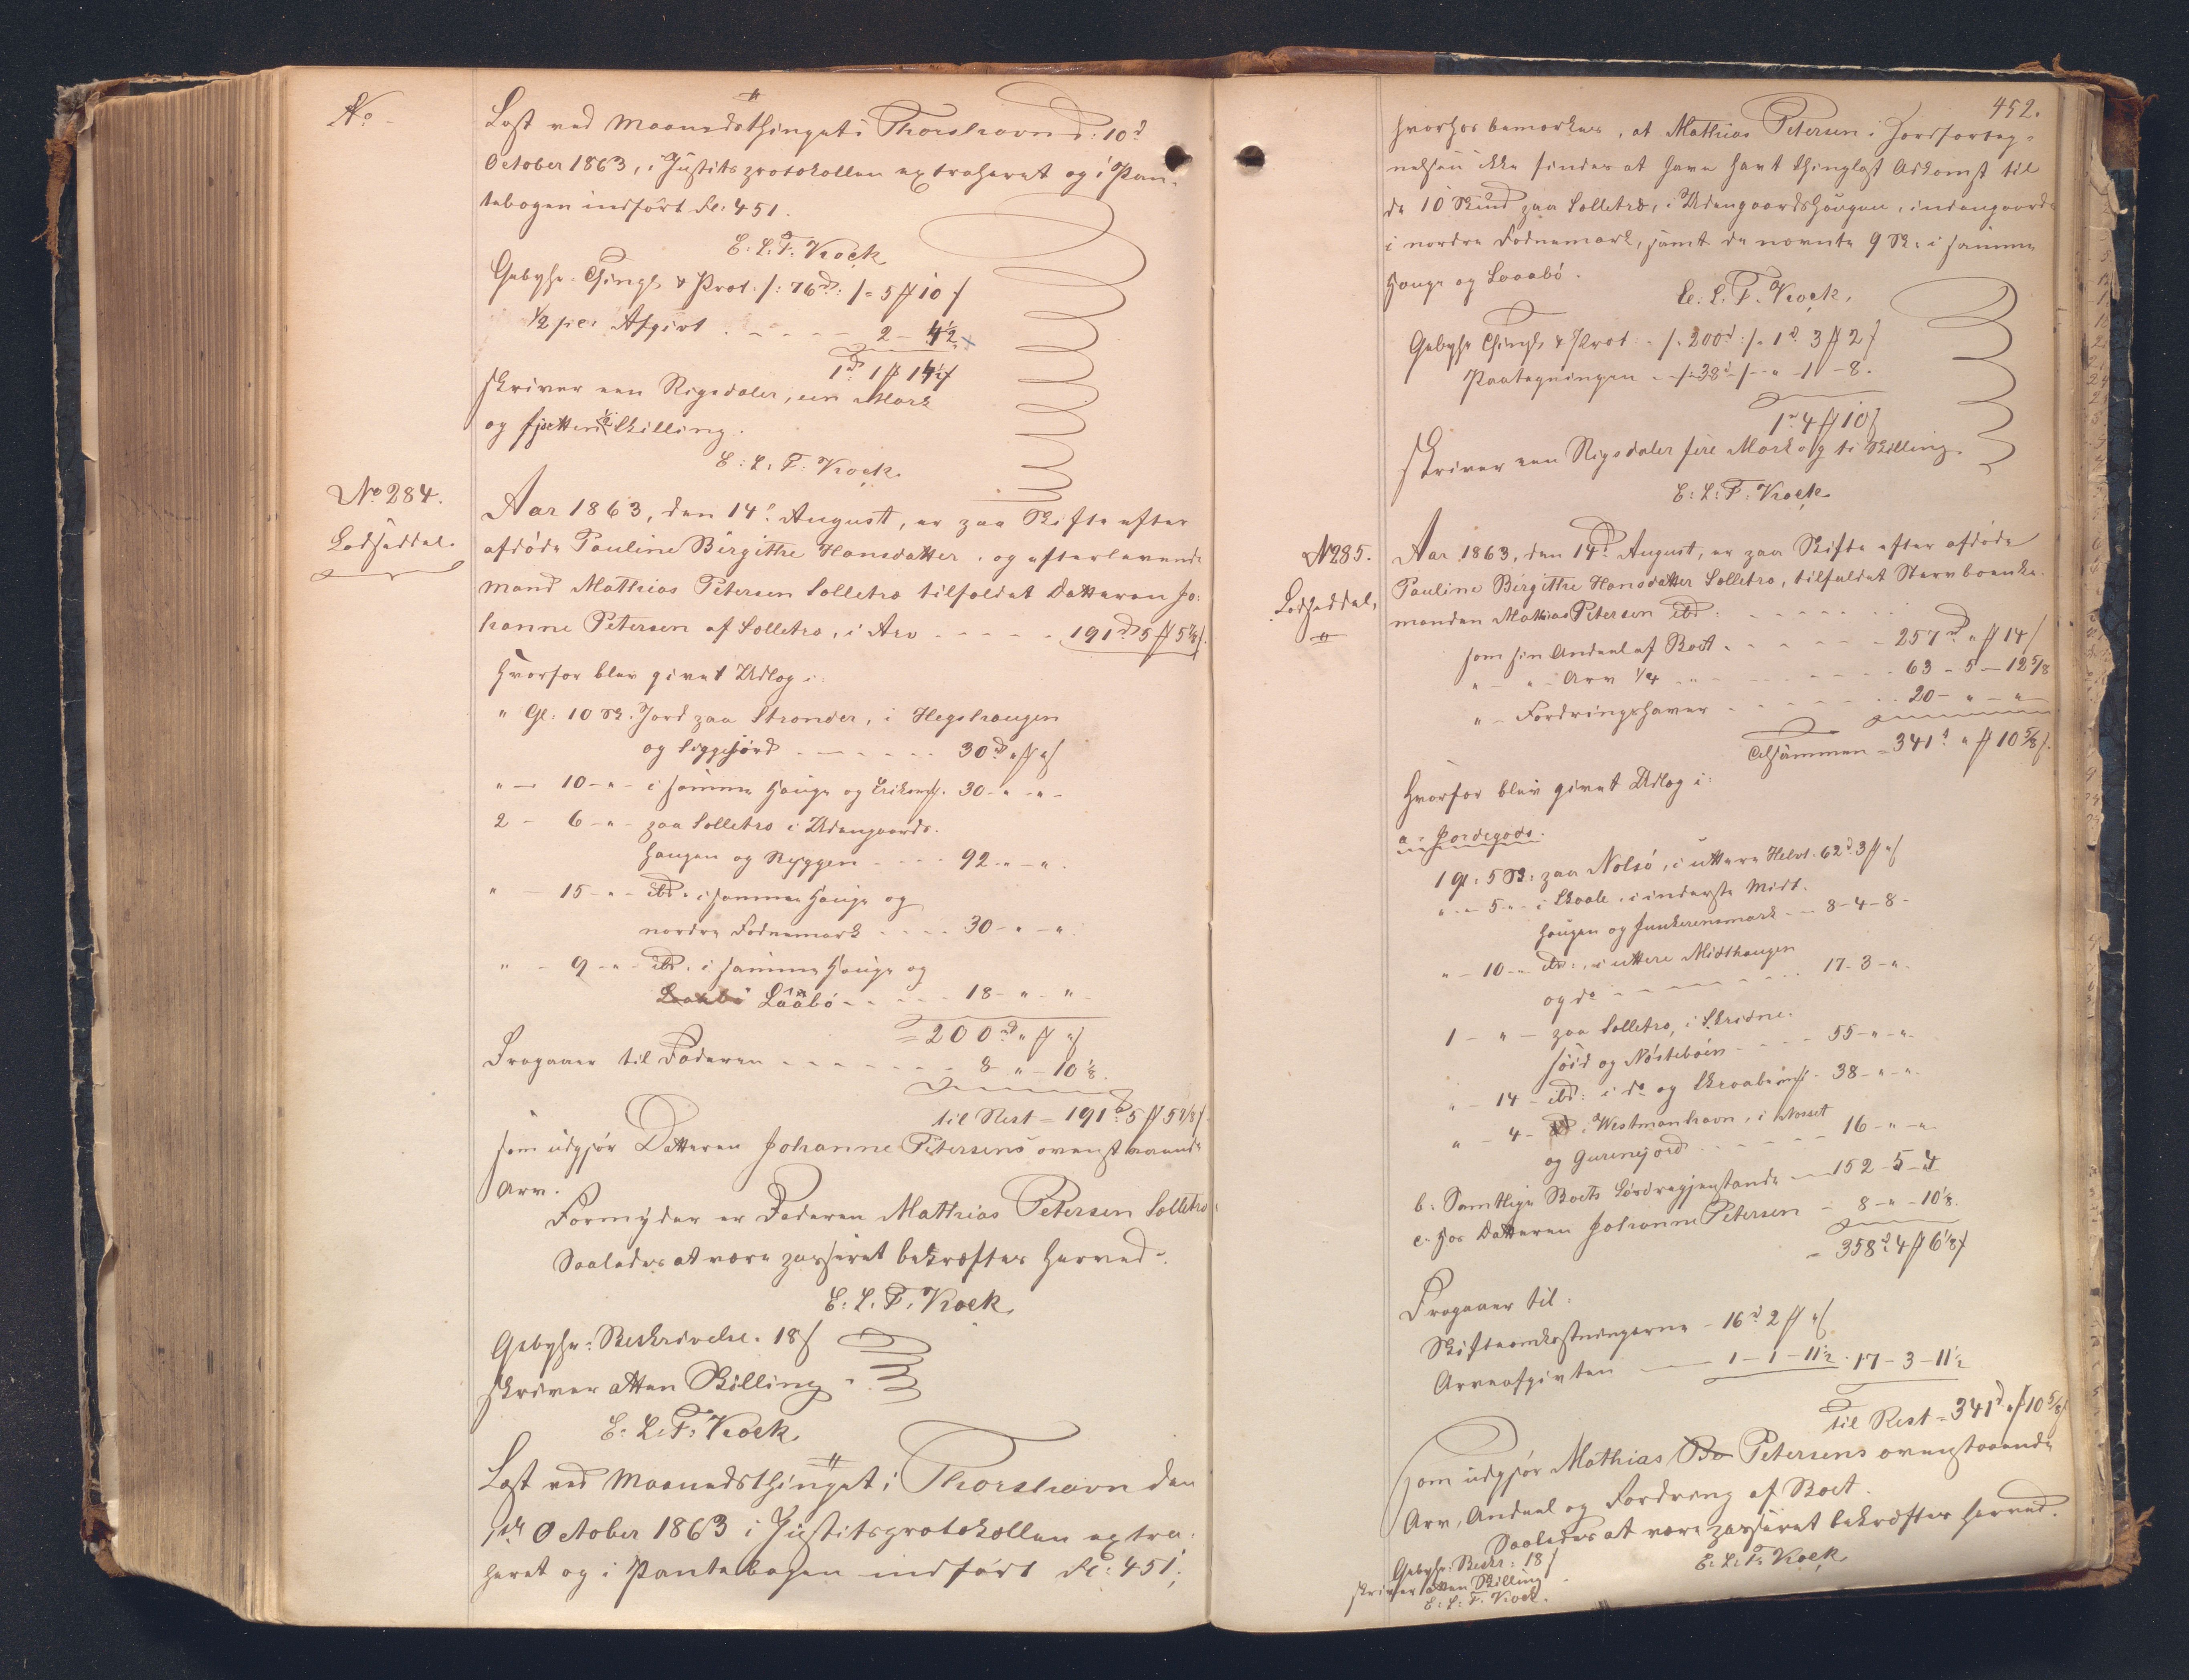 No
Læst ved Maanedsthinget i Thorshavn d: 10d
October 1863, i Justitsprotokollen extraheret og i Pan-
tebogen indført Fol: 451.
E. L. F. Kock
Gebyhr: Thingl. & Prot. /: 76d: / = 5 ℔ 10 ſ
1/2 pCt Afgivt . - - - - 2 - 4 1/2
1d 1 ℔ 14 1/2 ſ
skriver een Rigsdaler, een Mark
og fjorten 1/2 Skilling.
E: L. F. Kock
No 284.
Lodseddel.
Aar 1863, den 14d August, er paa Skifte efter
afdøde Pauline Birgithe Hansdatter, og efterlevende
Mand Mathias Petersen Solletrø tilfaldet Datteren Jo-
hanne Petersen af Solletrø, i Arv - - - - - 191d 5 ℔ 5 7/8 ſ.
hvorfor blev givet Udlog i:
" Gl: 10 Sk. Jord paa Strønder, i Hegshaugen
og Siggejord - - - - - - 30d " ℔ " ſ
" - 10 - " - i samme Hauge og 30 - " - " -
2 - 6 - " - paa Solletrø i Udengaards-
haugen og Ryggen - - - - 92 - " - ".
" - 15 - " - ibd. i samme Hauge og
nordre Fodnemark - - - - 30 - " - ".
" - 9 - " - ibd. i samme Hauge og
Laabø Lååbø - - - - - 18 - " - " -
= 200d " ℔ " ſ
Fragaaer til Faderen - - - - - - - 8 " - 10 1/8.
til Rest = 191d 5 ℔ 5 7/8 ſ.
som udgjør Datteren Johanne Petersens ovenstaaende
Arv.
Formynder er Faderen Mathias Petersen Solletrø
Saaledes at være passeret bekræftes herved.
E. L. F. Kock.
Gebyhr: Beskrivelse. 18 ſ
skriver atten Skilling.
E. L. F. Kock.
Læst ved Maanedsthinget i Thorshavn den
10d October 1863 i Justitsprotokollen extra-
heret og i Pantebogen indført Fol: 451;
452.
hvorhos bemærkes, at Mathias Petersen i Jordforteg-
nelsen ikke findes at have havt thinglæst Adkomst til
de 10 Skind paa Solletrø, i Udengaardshaugen, indengaards
i nordre Fodnemark, samt de nævnte 9 Sk. i samme
Hauge og Laaabø.
E. L. F. Kock.
Gebyhr Thingl. & Prot. - /. 200d: /. 1d 3 ℔ 2 ſ
Paategningen - - /. 38d / - - " - 1 - 8.
1d 4 ℔ 10 ſ
skriver een Rigsdaler fire Mark og ti Skilling.
E: L: F: Kock
No 285.
Lodseddel.
Aar 1863, den 14d August, er paa Skifte efter afdøde
Pauline Birgithe Hansdatter Solletrø, tilfaldet Stervboenke-
manden Mathias Petersen ibd: - - - - - -
som sin Andeel af Boet . - - - - - 257d " ℔ 14 ſ
" - " - Arv 1/4 - - - - - - - 63 - 5 - 12 5/8
" - Fordringshaver - - - - - - - 20 - " - "
Tilsammen = 341d " ℔ 10 5/8 ſ.
hvorfor blev givet Udlog i:
a. Jordegods.
1 Gl: 5 Sk: paa Nolsø, i uttere Helvt. 62d 3 ℔ " ſ
" - - 5 - " - i Skaale, i inderste Midt-
haugen og Junkerenemark - - 8 - 4 - 8 -
" - 10 - " ibd:, i uttere Midthaugen
og do - - - - - - - 17 - 3 - ".
1 - " - paa Solletrø, i Skridne-
jørd og Nøstebøen - - - - 55 - " - ".
" - 14 - ibd: i do og - 38 - " - ".
" - 4 - i Westmanhavn, i Nosset
og Gurenejord - - - - - - 16 - " - ".
b: Samtlige Boets Løsøregjenstande - - 152 - 5 - 4
c. hos Datteren Johanne Petersen - 8 - " - 10 1/8.
= 358d 4 ℔ 6 1/8 ſ
Fragaaer til:
Skifteomkostningerne - 16d 2 ℔ " ſ
Arveafgivten - - 1 - 1 - 11 1/2 . 17 - 3 - 11 1/2
til Rest = 341d " ℔ 10 5/8 ſ
som udgjør Mathias Pe Petersens ovenstaaende
Arv, Andeel og Fordring af Boet.
Saaledes at være passeret bekræftes herved.
E. L. F. Kock
Gebyhr: Beskr: 18 ſ
skriver atten Skilling
E: L: F. Kock.